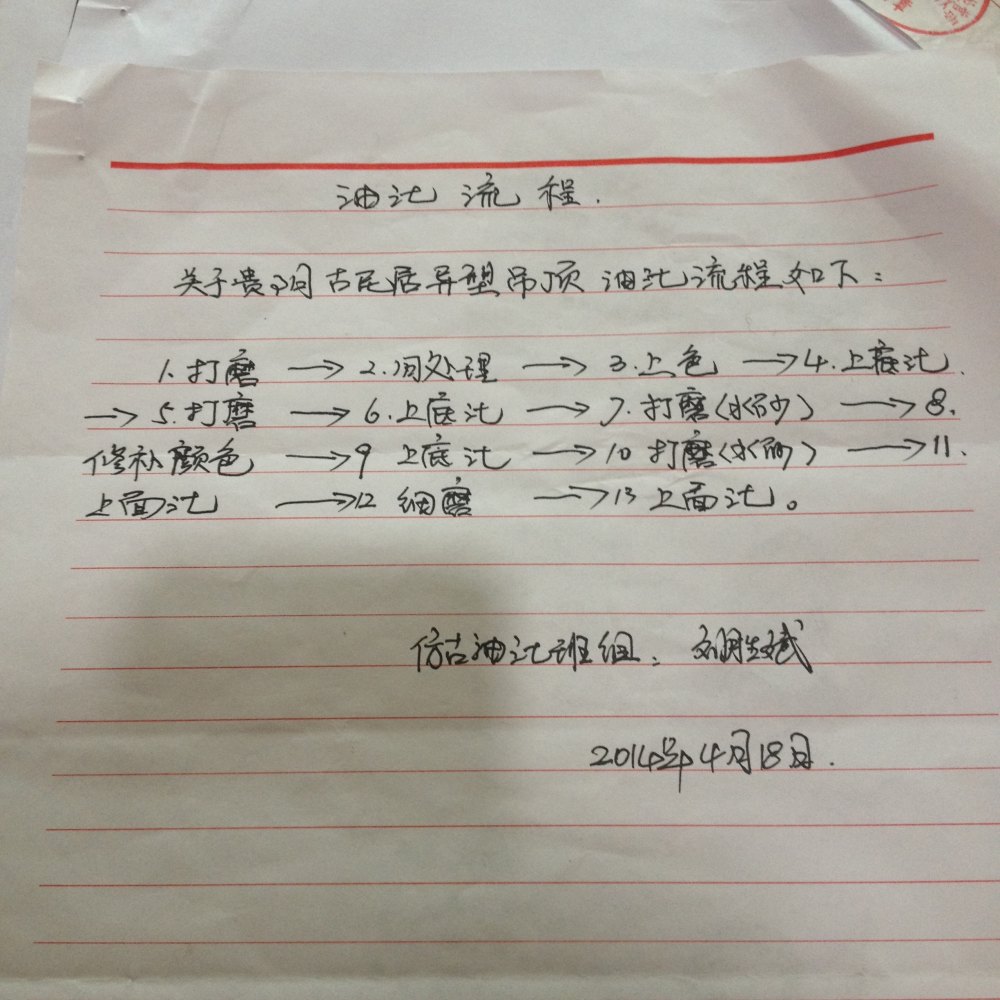 油汒流程.
关于贵阳古民居异型吊顶油汒流程如下:
1.打磨→2.闭处理→3.上色→4.上底汒.
→5.打磨→6.上底汒→7.打磨(水砂)→8.
修补颜色→9上底汒→10打磨(水砂)→11.
上面汒→12细磨→13上面汒。
仿古油汒班组:
2014年4月18日.